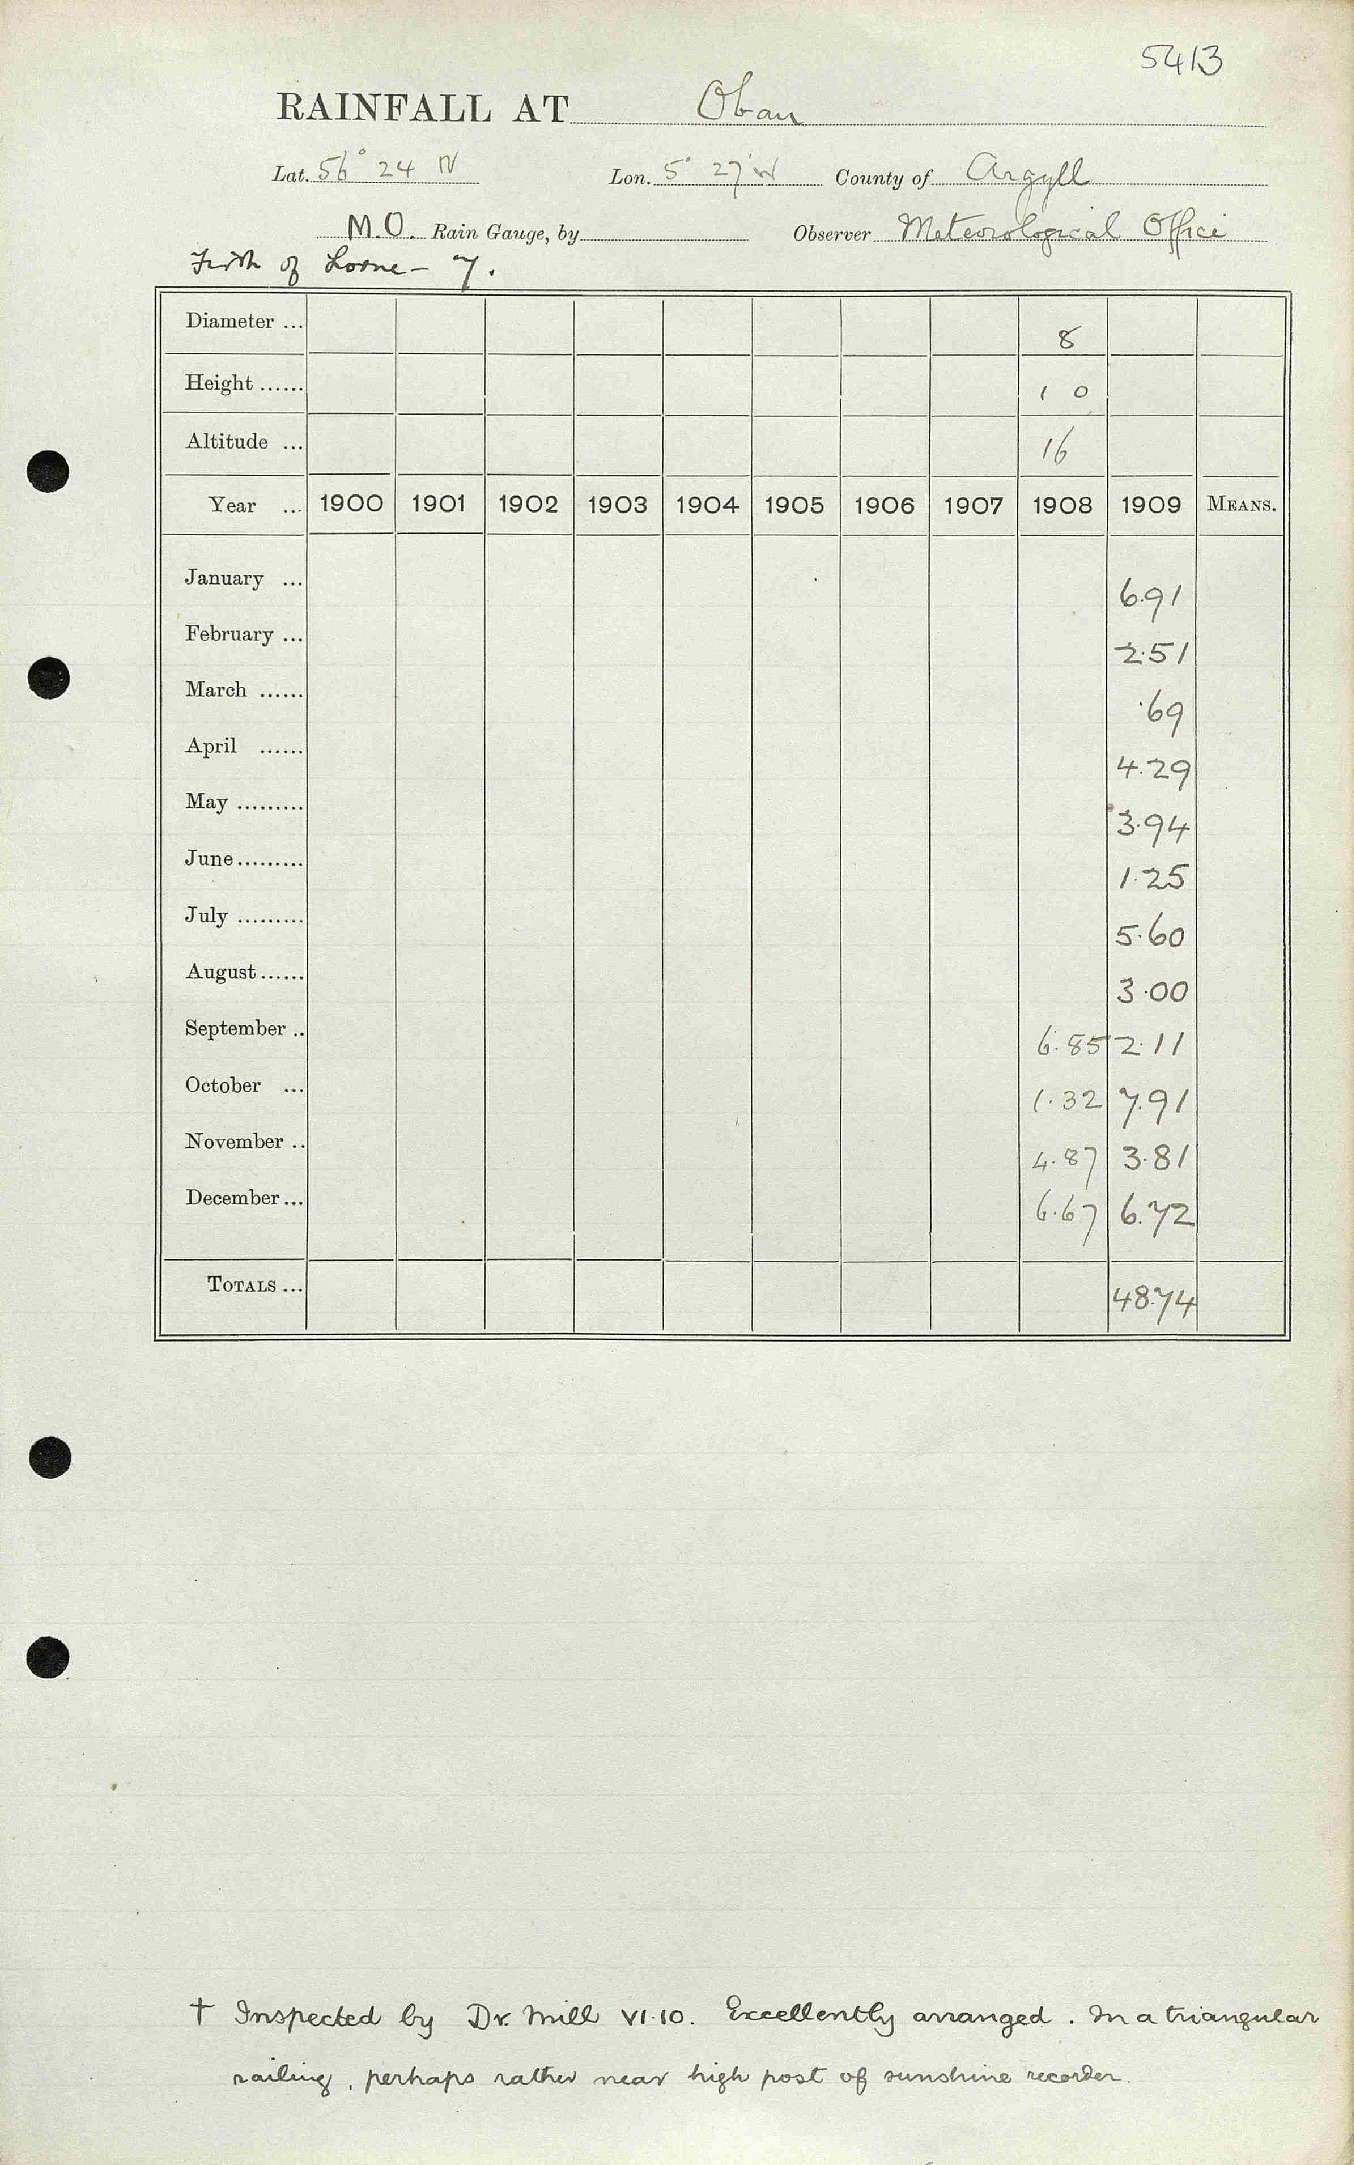 5413
RAINFALL AT Oban
Lat. 56° 24 N Lon. 5° 27' W County of Argyll
M.O. Rain Gauge, by Observer Meteorological Office
Firth of Lorne - 7.
Diameter ... 8
Height ...... 1 0
Altitude ... 16
Year ... 1900 1901 1902 1903 1904 1905 1906 1907 1908 1909 MEANS.
January ... 6.91
February ... 2.51
March ...... .69
April ...... 4.29
May ......... 3.94
June ......... 1.25
July ......... 5.60
August ...... 3.00
September .. 6.85 2.11
October ... 1.32 7.91
November .. 4.87 3.81
December ... 6.67 6.72
TOTALS ... 48.74
† Inspected by Dr. Mill VI.10. Excellently arranged. In a triangular
railing, perhaps rather near high post of sunshine recorder.